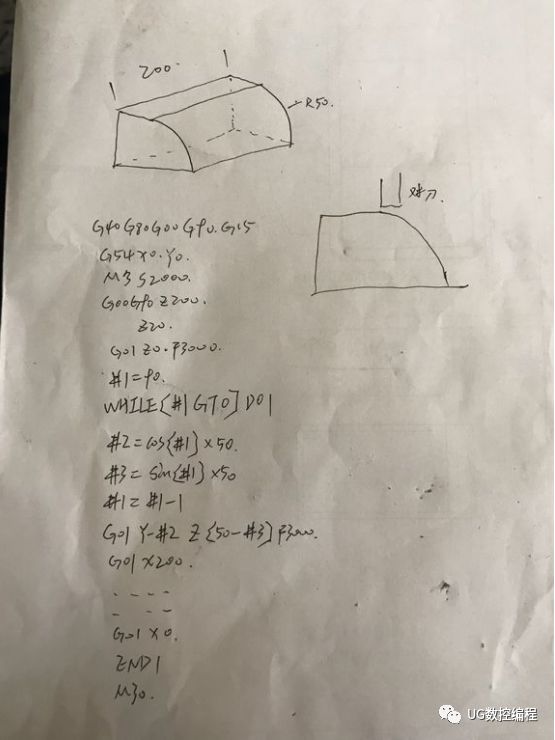 200.
R50.
对刀
G40 G80 G00 G90. G15
G54 X0. Y0.
M3 S2000.
G00 G90 Z200.
Z20.
G01 Z0. F3000.
#1=90.
WHILE[#1 GT 0] DO1
#2=COS[#1]×50.
#3=Sin[#1]×50
#1=#1-1
G01 Y-#2 Z[50-#3] F3000.
G01 X200.
- - - -
- - - -
G01 X0.
END1
M30.
UG数控编程